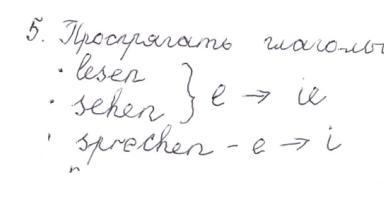 5. Проспрягать глаголы
· lesen } e → ie
· sehen
· sprechen - e → i